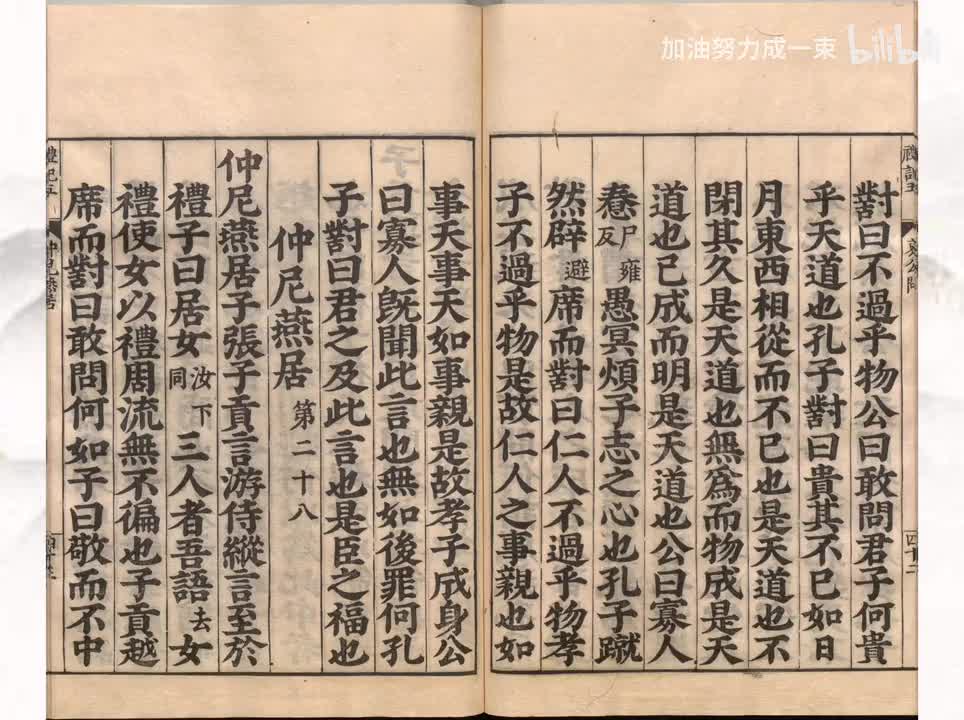 加油努力成一束 bilibili
對曰不過乎物公曰敢問君子何貴
乎天道也孔子對曰貴其不已如日
月東西相從而不已也是天道也不
閉其久是天道也無為而物成是天
道也已成而明是天道也公曰寡人
惷尸雍反愚冥煩子志之心也孔子蹴
然辟避席而對曰仁人不過乎物孝
子不過乎物是故仁人之事親也如
事天事天如事親是故孝子成身公
曰寡人既聞此言也無如後罪何孔
子對曰君之及此言也是臣之福也
仲尼燕居第二十八
仲尼燕居子張子貢言游侍縱言至於
禮子曰居女汝下同三人者吾語去女
禮使女以禮周流無不徧也子貢越
席而對曰敢問何如子曰敬而不中